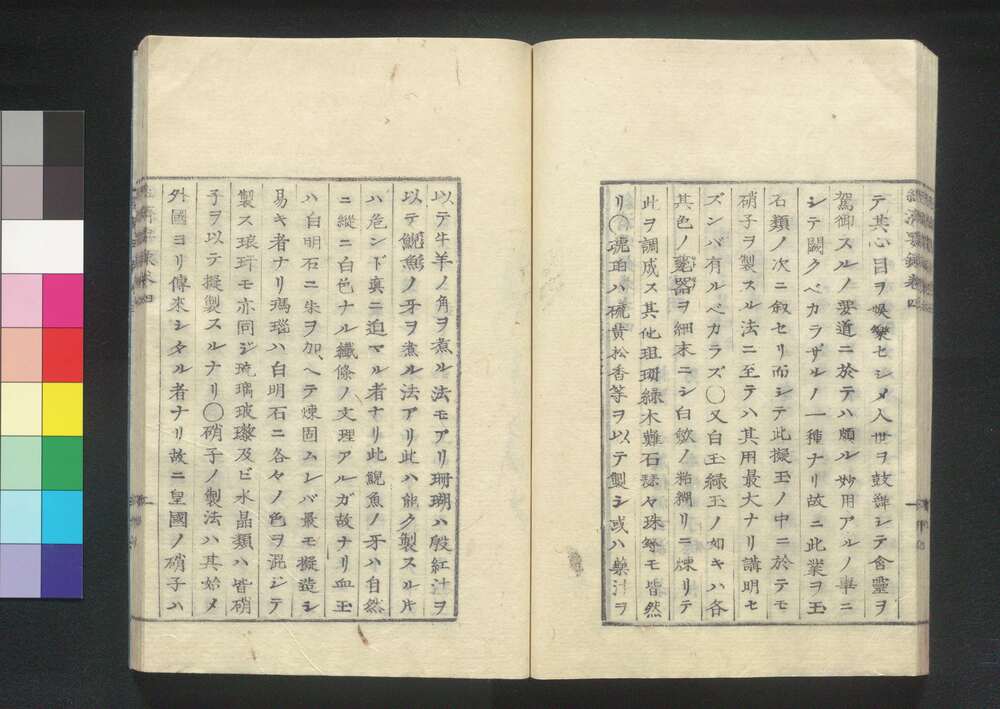 テ其心目ヲ娯樂セシメ人世ヲ鼓舞シテ含靈ヲ
駕御スルノ要道ニ於テハ頗ル妙用アルノ舉ニ
シテ闕クベカラザルノ一種ナリ故ニ此業ヲ玉
石類ノ次ニ叙セリ而シテ此擬玉ノ中ニ於テモ
硝子ヲ製スル法ニ至テハ其用最大ナリ講明セ
ズンバ有ルベカラズ〇又白玉綠玉ノ如キハ各
其色ノ甆器ヲ細末ニシ白歛ノ粘糊リニ煉リテ
此ヲ調成ス其他珇㻁綠木難石瑟々珠等モ皆然
リ〇琥珀ハ硫黄松香等ヲ以テ製シ或ハ藥汁ヲ
以テ牛羊ノ角ヲ煮ル法モアリ珊瑚ハ殷紅汁ヲ
以テ鯢魚ノ牙ヲ煮ル法アリ此ハ能ク製スル片
ハ危ンド真ニ迫マル者ナリ此鯢魚ノ牙ハ自然
ニ縱ニ白色ナル纖條ノ文理アルガ故ナリ血玉
ハ白明石ニ朱ヲ加ヘテ煉固ムレバ最モ擬造シ
易キ者ナリ瑪瑙ハ白明石ニ各々ノ色ヲ混ジテ
製ス琅玕モ亦同ジ琉璃玻瓈及ビ水晶類ハ皆硝
子ヲ以テ擬製スルナリ〇硝子ノ製法ハ其始メ
外國ヨリ傳來シタル者ナリ故ニ皇國ノ硝子ハ